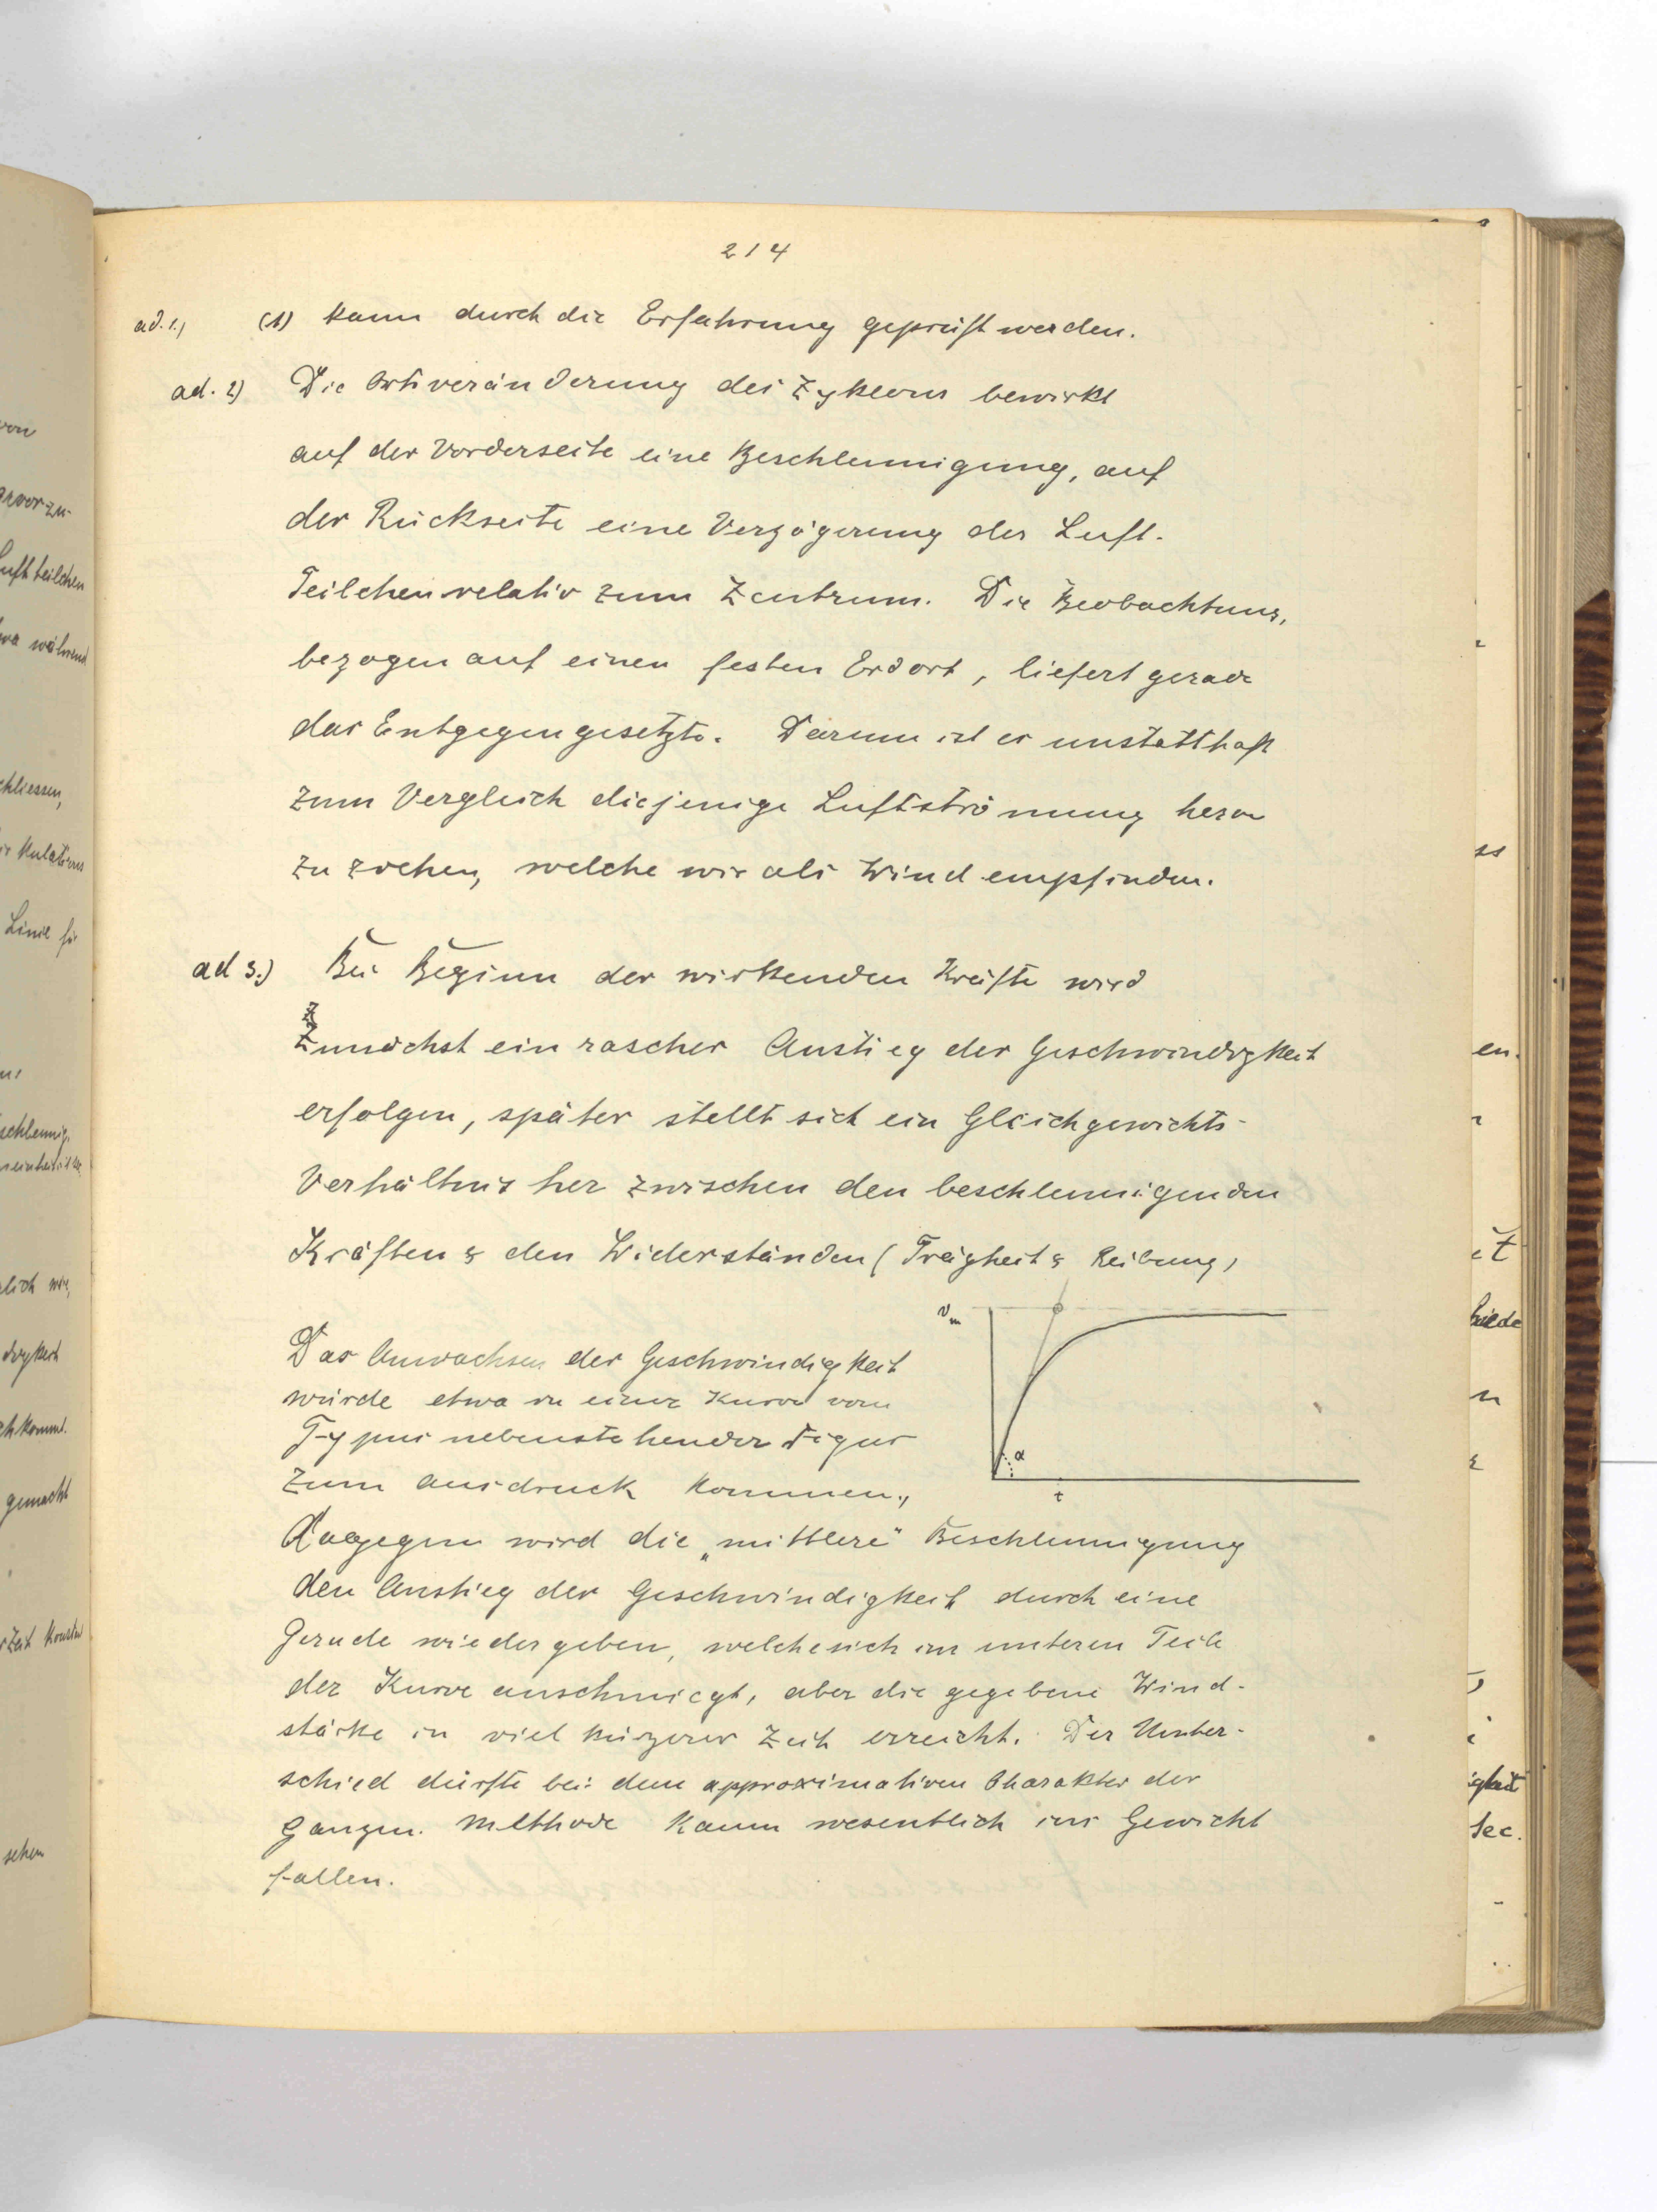 214
ad. 1.) (1) kann durch die Erfahrung geprüft werden.
ad. 2) Die Ortsveränderung des Zyklons bewirkt
auf der Vorderseite eine Beschleunigung, auf
der Rückseite eine Verzögerung der Luft-
Teilchen relativ zum Zentrum. Die Beobachtung,
bezogen auf einen festen Erdort, liefert gerade
das Entgegengesetzte. Darum ist es unstatthaft
zum Vergleich diejenige Luftströmung heran
zu ziehen, welche wir als Wind empfinden.
ad 3.) Bei Beginn der wirkenden Kräfte wird
Zunächst ein rascher Anstieg der Geschwindigkeit
erfolgen, später stellt sich ein Gleichgewichts-
Verhältnis her zwischen den beschleunigenden
Kräften & den Widerständen (Trägheit & Reibung)
Das Anwachsen der Geschwindigkeit
würde etwa in einer Kurve vom
Typus nebenstehender Figur
zum Ausdruck kommen.,
vm
α
t
Dagegen wird die „mittlere" Beschleunigung
den Anstieg der Geschwindigkeit durch eine
Gerade wiedergeben, welche sich im unteren Teile
der Kurve anschmiegt, aber die gegebene Wind-
stärke in viel kürzerer Zeit erreicht. Der Unter-
schied dürfte bei dem approximativen Charakter der
ganzen Methode kaum wesentlich ins Gewicht
fallen.